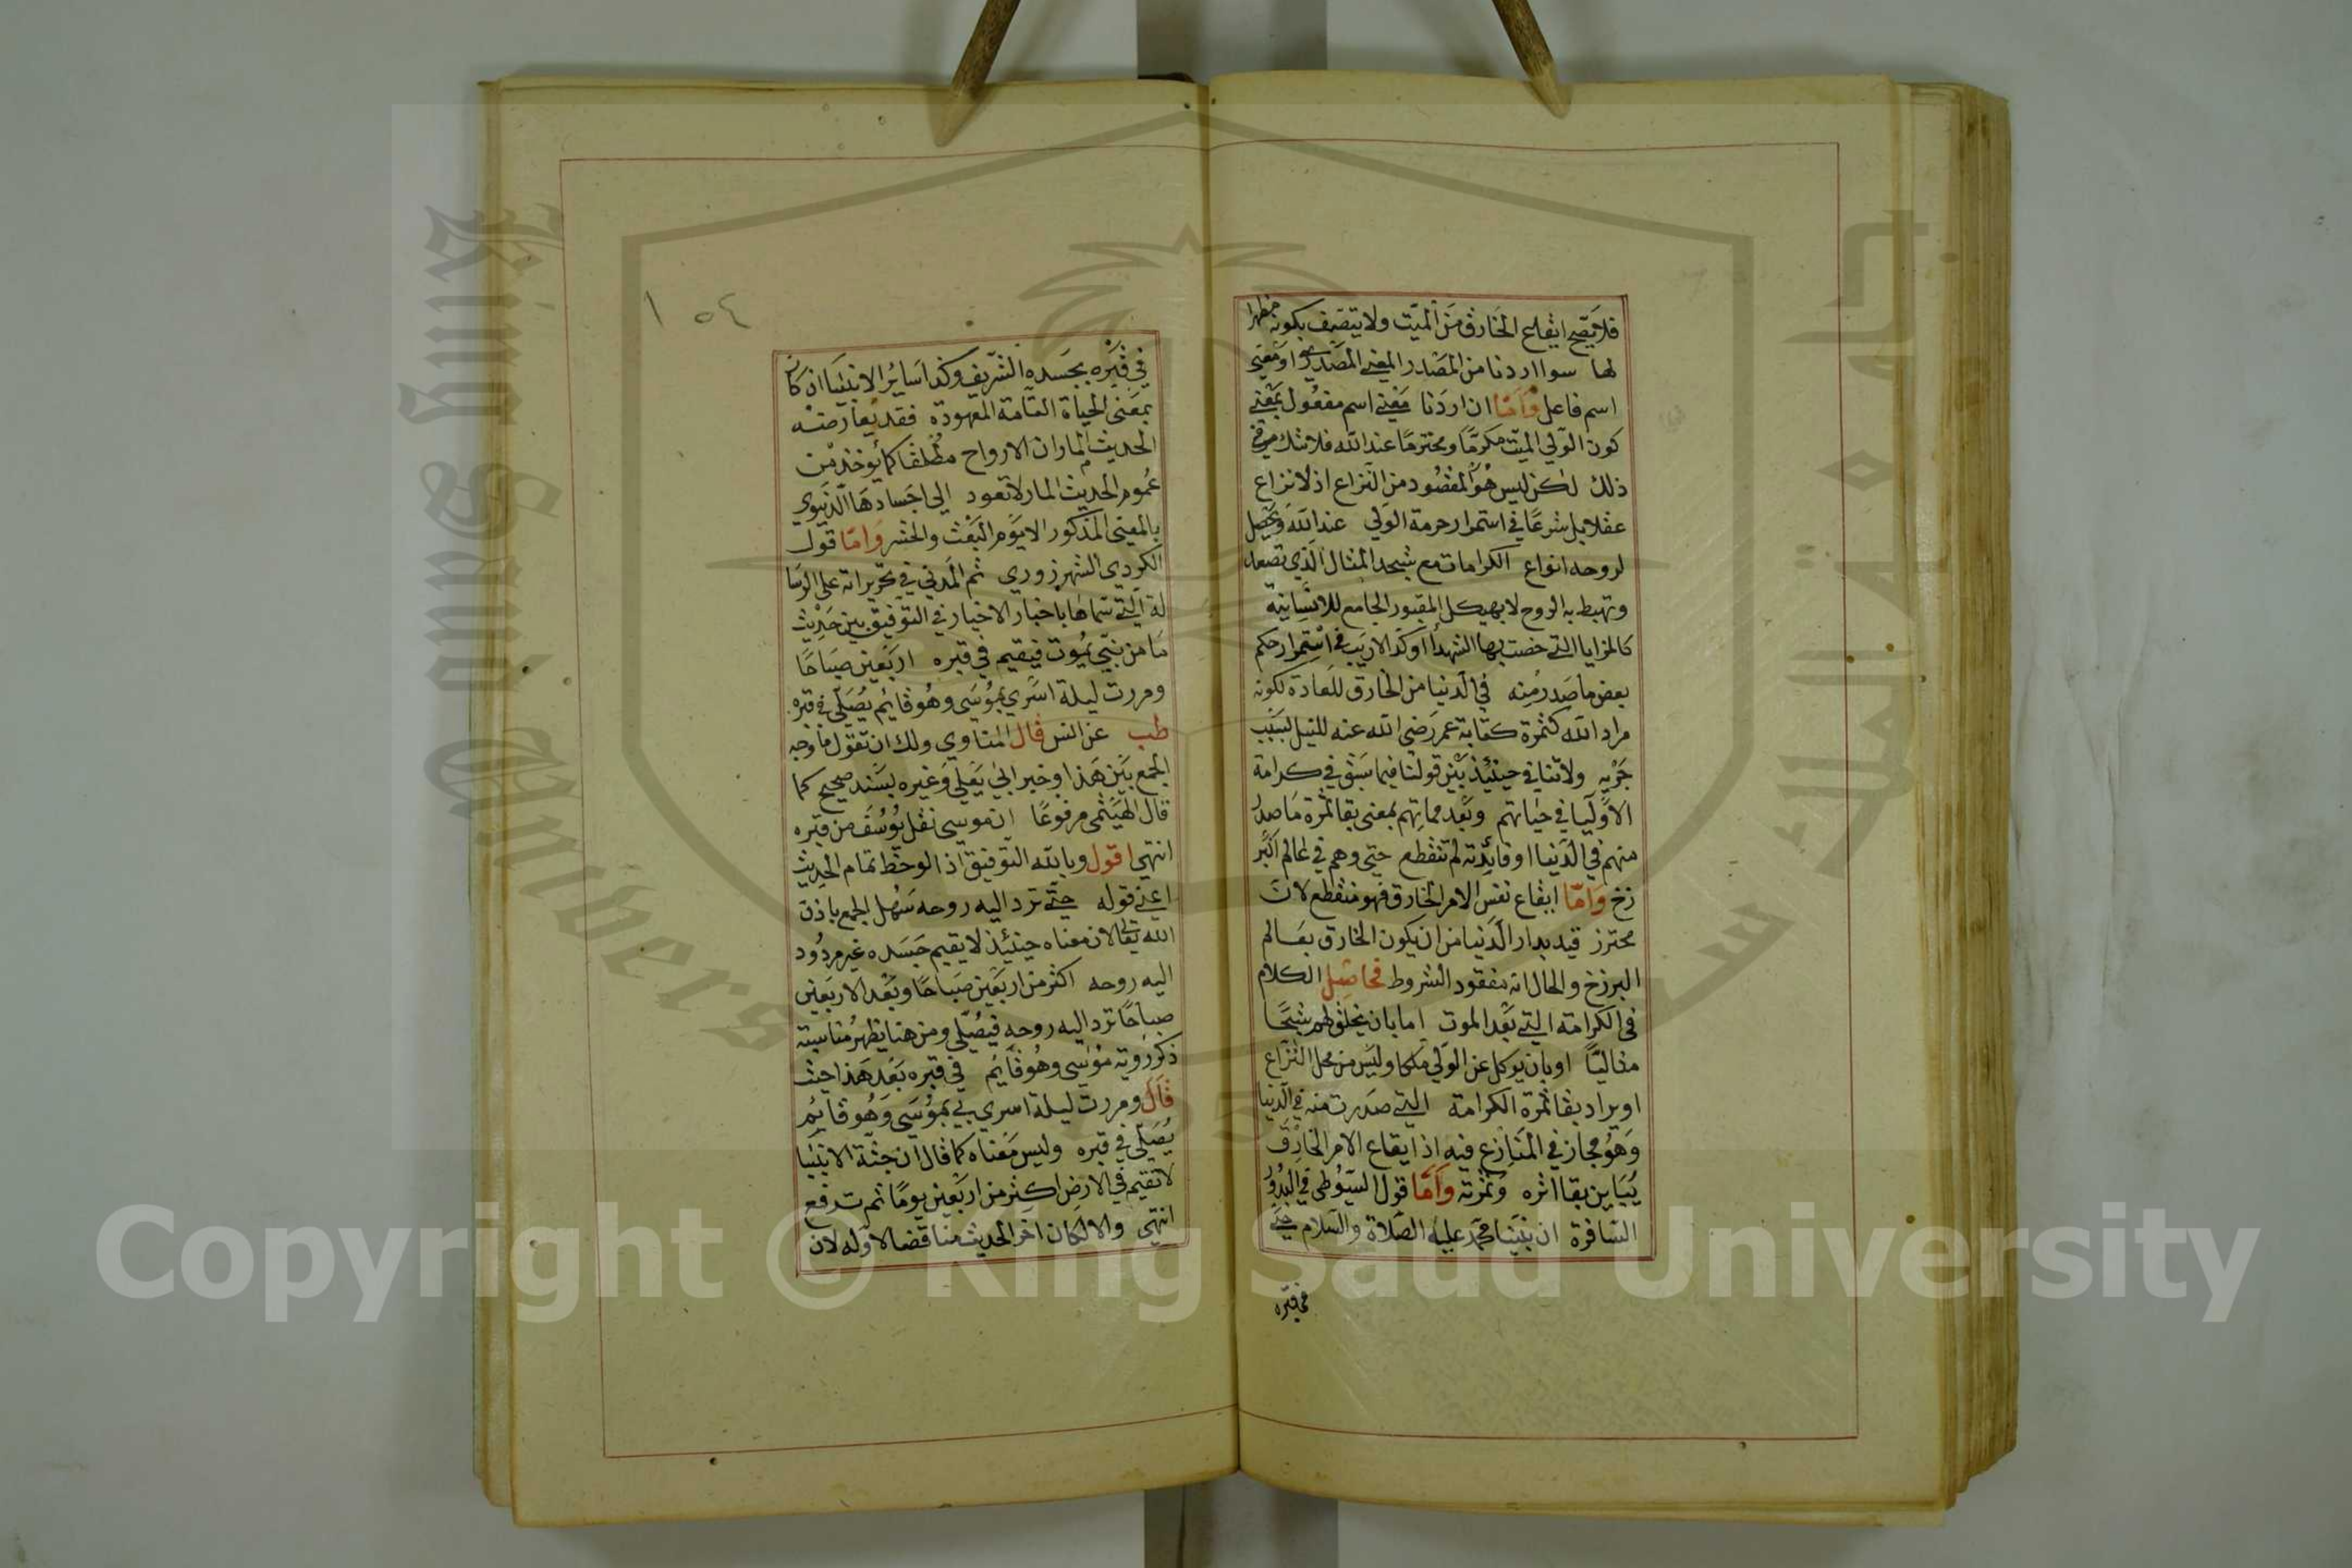 فلا يصح ايقاع الخارق من الميت ولا يتصف بكونه مظهرا
لها سوا اردنا من المصدر المعنى المصدري او معنى
اسم فاعل واما ان اردنا معنى اسم مفعول بمعنى
كون الولي الميت مكرما ومحترما عند الله فلا شك في
ذلك لكن ليس هو المقصود من النزاع اذ لا نزاع
عقلا بل شرعا في استمرار حرمة الولي عند الله ويحصل
لروحه انواع الكرامات مع شبحه المثال الذي تصعد
وتهبط به الروح لا بهيكل المقبور الجامع للانسانية
كالمزايا التي خصت بها الشهدا وكذا لا ريب في استمرار حكم
بعض ما صدر منه في الدنيا من الخارق للعادة لكونه
مراد الله كثمرة كتابة عمر رضي الله عنه للنيل لسبب
جريه ولا تنافي حينئذ بين قولنا فيما سبق في كرامة
الاوليا في حياتهم وبعد مماتهم بمعنى بقا ثمرة ما صدر
منهم في الدنيا او فائدته لم تنقطع حتى وهم في عالم البر
زخ واما ايقاع نفس الامر الخارق فهو منقطع لانه
محترز قيد بدار الدنيا من ان يكون الخارق بعالم
البرزخ والحال انه مفقود الشروط فحاصل الكلام
في الكرامة التي بعد الموت اما بان يخلق لهم شبحا
مثاليا او بان يوكل عن الولي ملكا وليس من محل النزاع
او يراد بقا ثمرة الكرامة التي صدرت منه في الدنيا
وهو مجاز في المنازع فيه اذ ايقاع الامر الخارق
يباين بقا اثره وثمرته واما قول السيوطي في البدور
السافرة ان نبينا محمد عليه الصلاة والسلام حي
في قبره
١٥٤
في قبره بجسده الشريف وكذا سائر الانبيا ان كان
بمعنى الحياة التامة المعهودة فقد يعارضه
الحديث المار ان الارواح مطلقا كما يؤخذ من
عموم الحديث المار لا تعود الى اجسادها الدنيوي
بالمعنى المذكور الا يوم البعث والحشر واما قول
الكردي الشهرزوري ثم المدني في تحريراته على الرسا
لة التي سماها باخبار الاخيار في التوفيق بين حديث
ما من نبي يموت فيقيم في قبره اربعين صباحا
ومررت ليلة اسري بموسى وهو قائم يصلي في قبره
طب عن انس قال المناوي ولك ان تقول ما وجه
الجمع بين هذا وخبر ابي يعلى وغيره بسند صحيح كما
قال الهيثمي مرفوعا ان موسى نقل يوسف من قبره
انتهى اقول وبالله التوفيق اذا لوحظ تمام الحديث
اعني قوله حتى ترد اليه روحه سهل الجمع باذن
الله تعالى لان معناه حينئذ لا يقيم جسده غير مردود
اليه روحه اكثر من اربعين صباحا وبعد الاربعين
صباحا ترد اليه روحه فيصلي ومن هنا يظهر مناسبته
ذكر رويته موسى وهو قائم في قبره بعد هذا حيث
قال ومررت ليلة اسري بي بموسى وهو قائم
يصلي في قبره وليس معناه كما قال ان جثة الانبيا
لا تقيم في الارض اكثر من اربعين يوما ثم ترفع
انتهى والا لكان اخر الحديث مناقضا لاوله لان
King Saud University
جامعة الملك سعود
Copyright © King Saud University